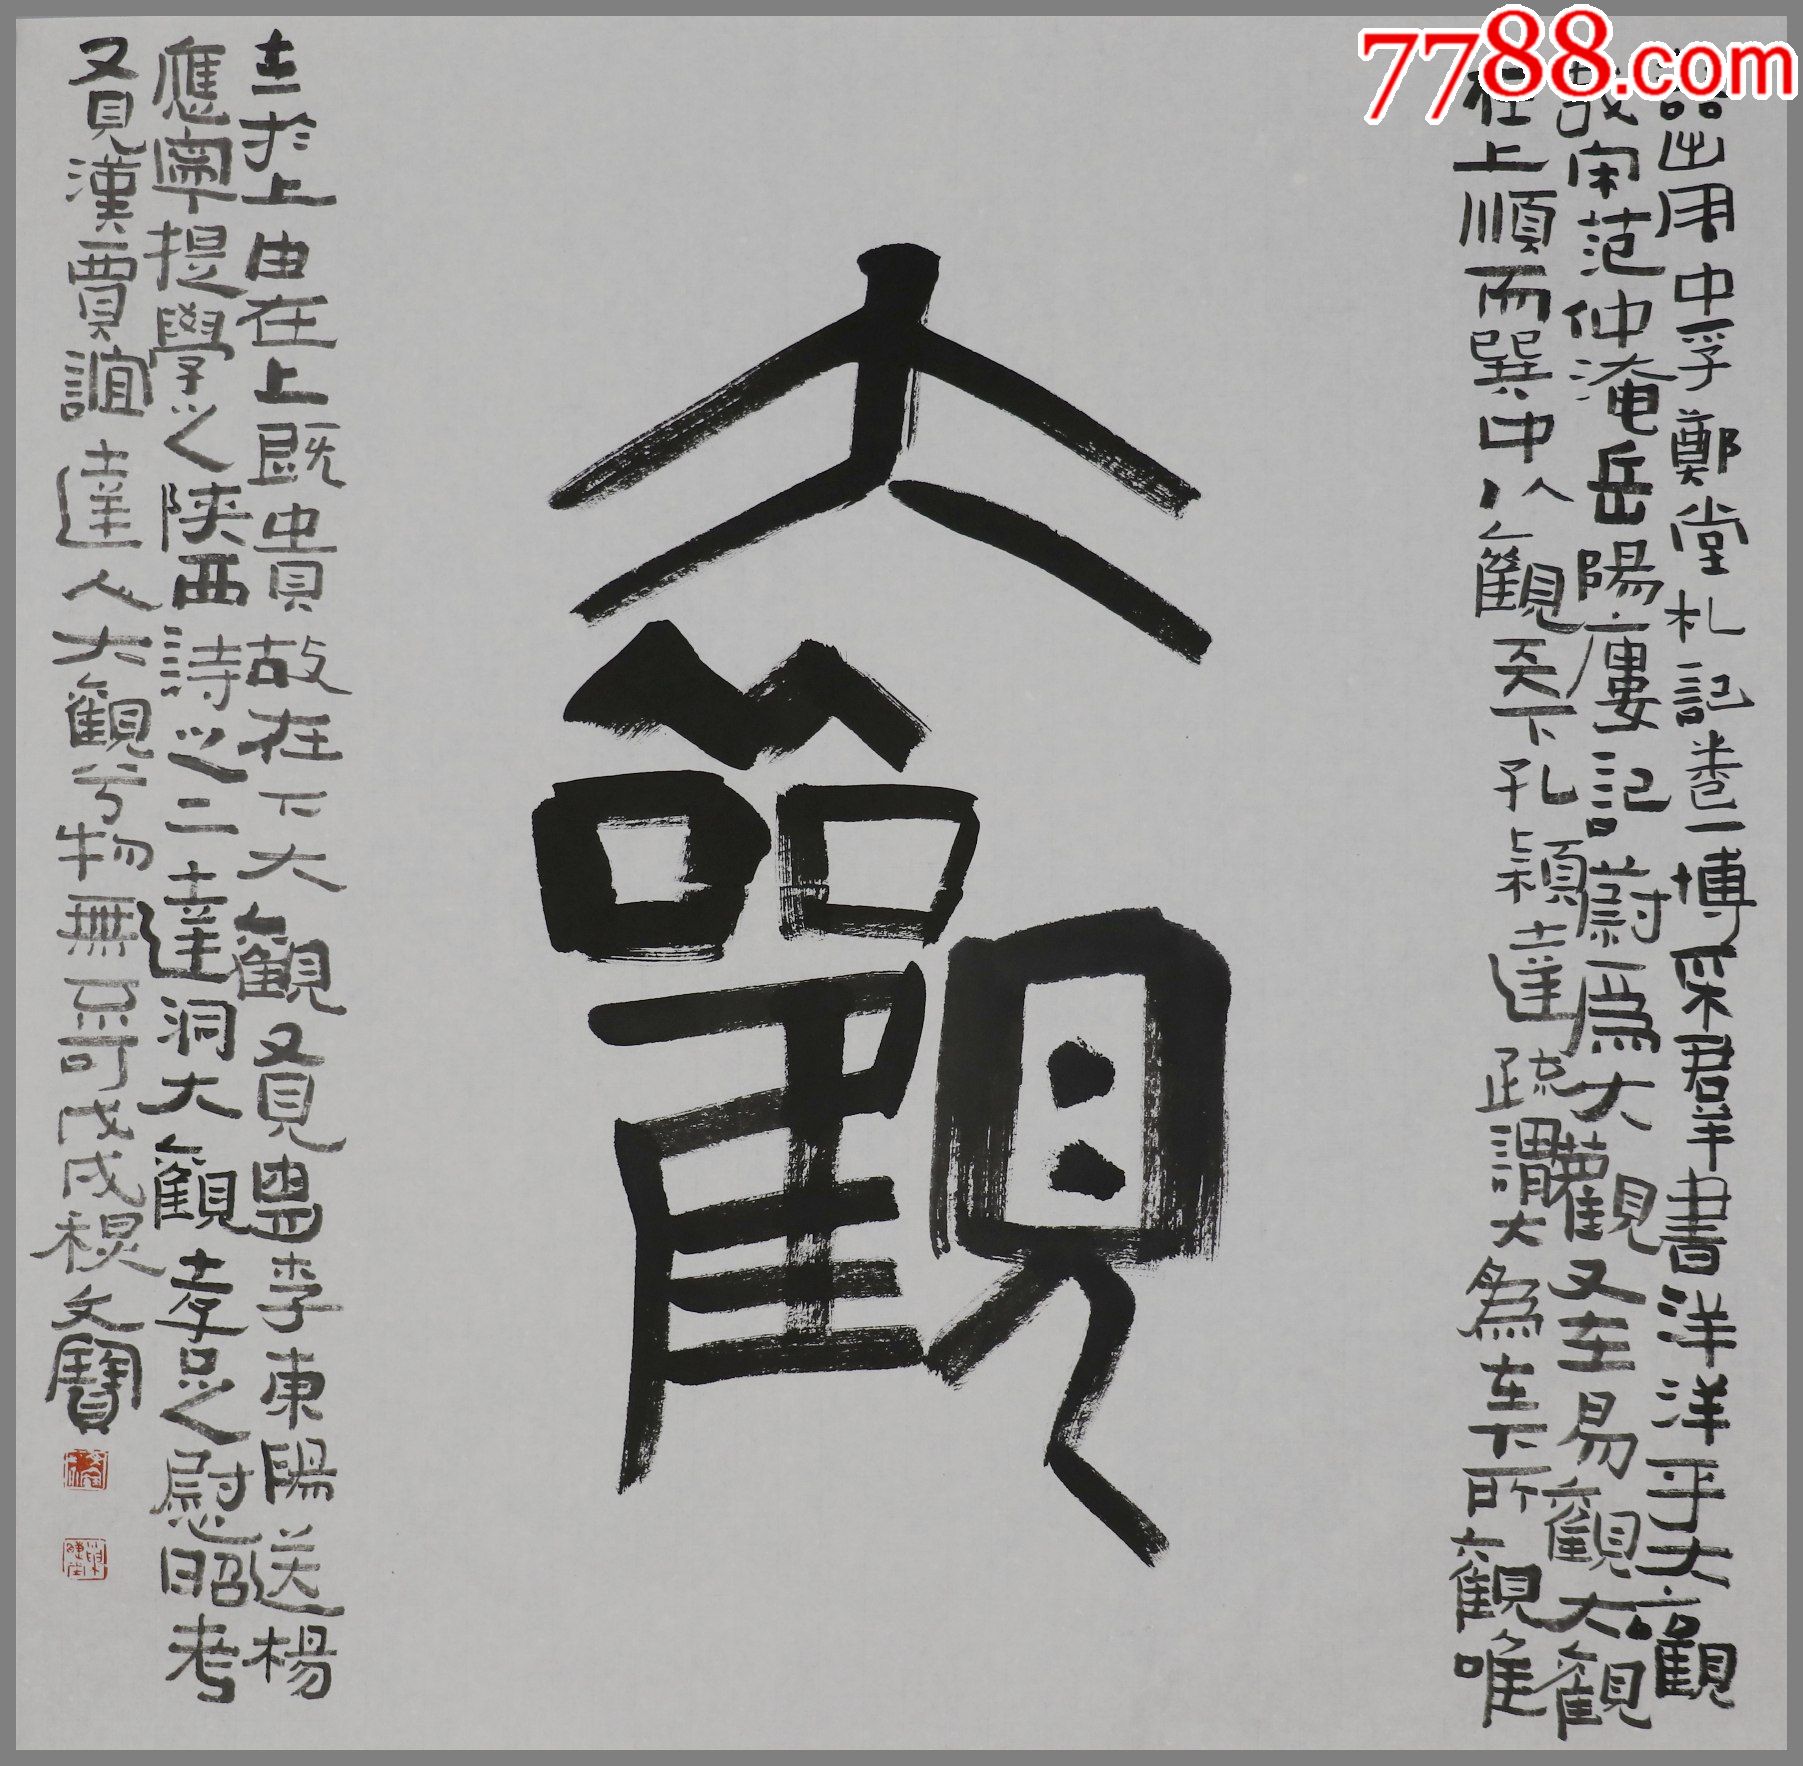 7788.com
出周中孚鄭堂札記卷一博采群書洋洋乎大觀
哉宋范仲淹岳陽廔記蔚爲大觀又在易觀大觀
在上順而巽中以觀天下孔穎達疏謂大爲在下所觀唯
大觀
在於上由在上既貴故在下大觀又見粵李東陽送楊
應寧提學之陝西詩之二達洞大觀孝足之慰昭考
又見漢賈誼達人大觀兮物無不可戊戌根文寶